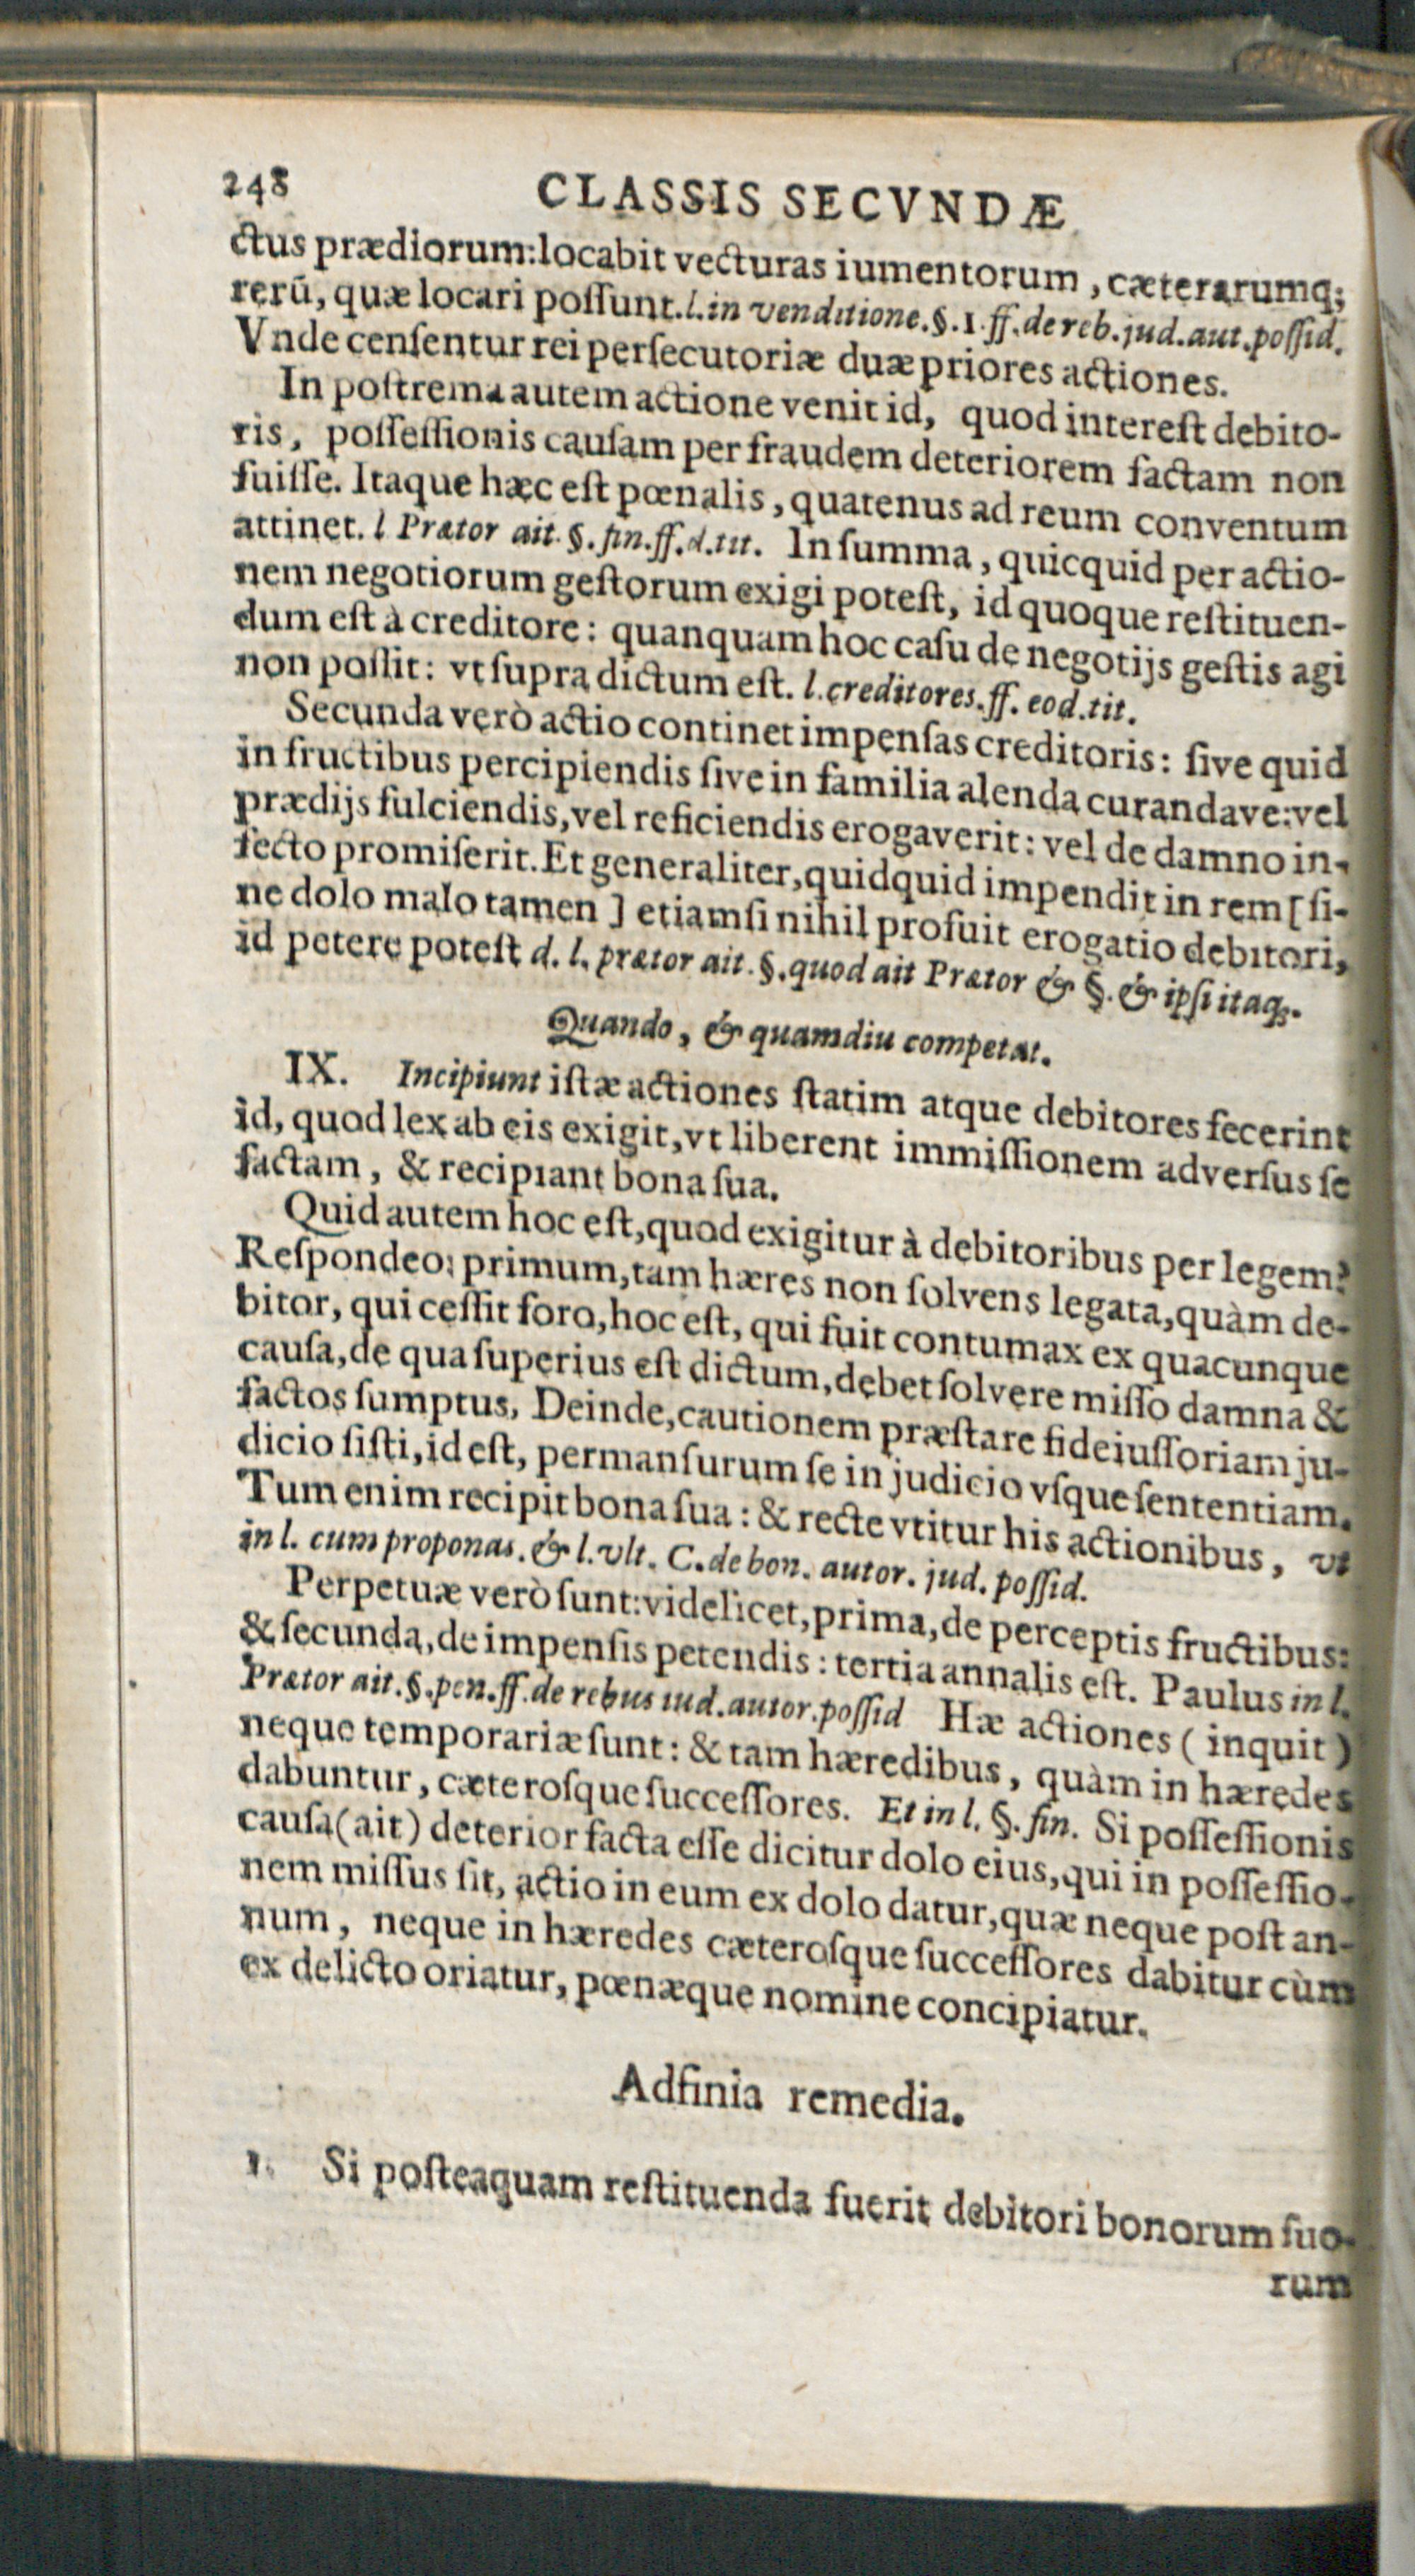 248 CLASSIS SECVNDÆ
ctus prædiorum: locabit vecturas iumentorum, cæterarumq;
rerū, quæ locari poſſunt. l. in venditione. §. 1. ff. de reb. jud. aut. poſſid.
Vnde cenſentur rei perſecutoriæ duæ priores actiones.
In poſtrema autem actione venit id, quod intereſt debito-
ris, poſſeſſionis cauſam per fraudem deteriorem factam non
fuiſſe. Itaque hæc eſt pœnalis, quatenus ad reum conventum
attinet. l Prætor ait. §. fin. ff. d. tit. In ſumma, quicquid per actio-
nem negotiorum geſtorum exigi poteſt, id quoque reſtituen-
dum eſt à creditore: quanquam hoc caſu de negotijs geſtis agi
non poſſit: vt ſupra dictum eſt. l. creditores. ff. eod. tit.
Secunda verò actio continet impenſas creditoris: ſive quid
in fructibus percipiendis ſive in familia alenda curandave: vel
prædijs fulciendis, vel reficiendis erogaverit: vel de damno in-
fecto promiſerit. Et generaliter, quidquid impendit in rem [ſi-
ne dolo malo tamen] etiamſi nihil profuit erogatio debitori,
id petere poteſt d. l. prætor ait. §. quod ait Prætor & §. & ipſi itaq;.
Quando, & quamdiu competat.
IX. Incipiunt iſtæ actiones ſtatim atque debitores fecerint
id, quod lex ab eis exigit, vt liberent immiſſionem adverſus ſe
factam, & recipiant bona ſua.
Quid autem hoc eſt, quod exigitur à debitoribus per legem?
Reſpondeo: primum, tam hæres non ſolvens legata, quàm de-
bitor, qui ceſſit foro, hoc eſt, qui fuit contumax ex quacunque
cauſa, de qua ſuperius eſt dictum, debet ſolvere miſſo damna &
factos ſumptus, Deinde, cautionem præſtare fideiuſſoriam ju-
dicio ſiſti, id eſt, permanſurum ſe in judicio vſque ſententiam.
Tum enim recipit bona ſua: & recte vtitur his actionibus, vt
in l. cum proponas. & l. vlt. C. de bon. autor. jud. poſſid.
Perpetuæ verò ſunt: videlicet, prima, de perceptis fructibus:
& ſecunda, de impenſis petendis: tertia annalis eſt. Paulus in l.
Prætor ait. §. pen. ff. de rebus iud. autor. poſſid Hæ actiones (inquit)
neque temporariæ ſunt: & tam hæredibus, quàm in hæredes
dabuntur, cæteroſque ſucceſſores. Et in l. §. fin. Si poſſeſſionis
cauſa (ait) deterior facta eſſe dicitur dolo eius, qui in poſſeſſio-
nem miſſus ſit, actio in eum ex dolo datur, quæ neque poſt an-
num, neque in hæredes cæteroſque ſucceſſores dabitur cùm
ex delicto oriatur, pœnæque nomine concipiatur.
Adfinia remedia.
1. Si poſteaquam reſtituenda fuerit debitori bonorum ſuo-
rum